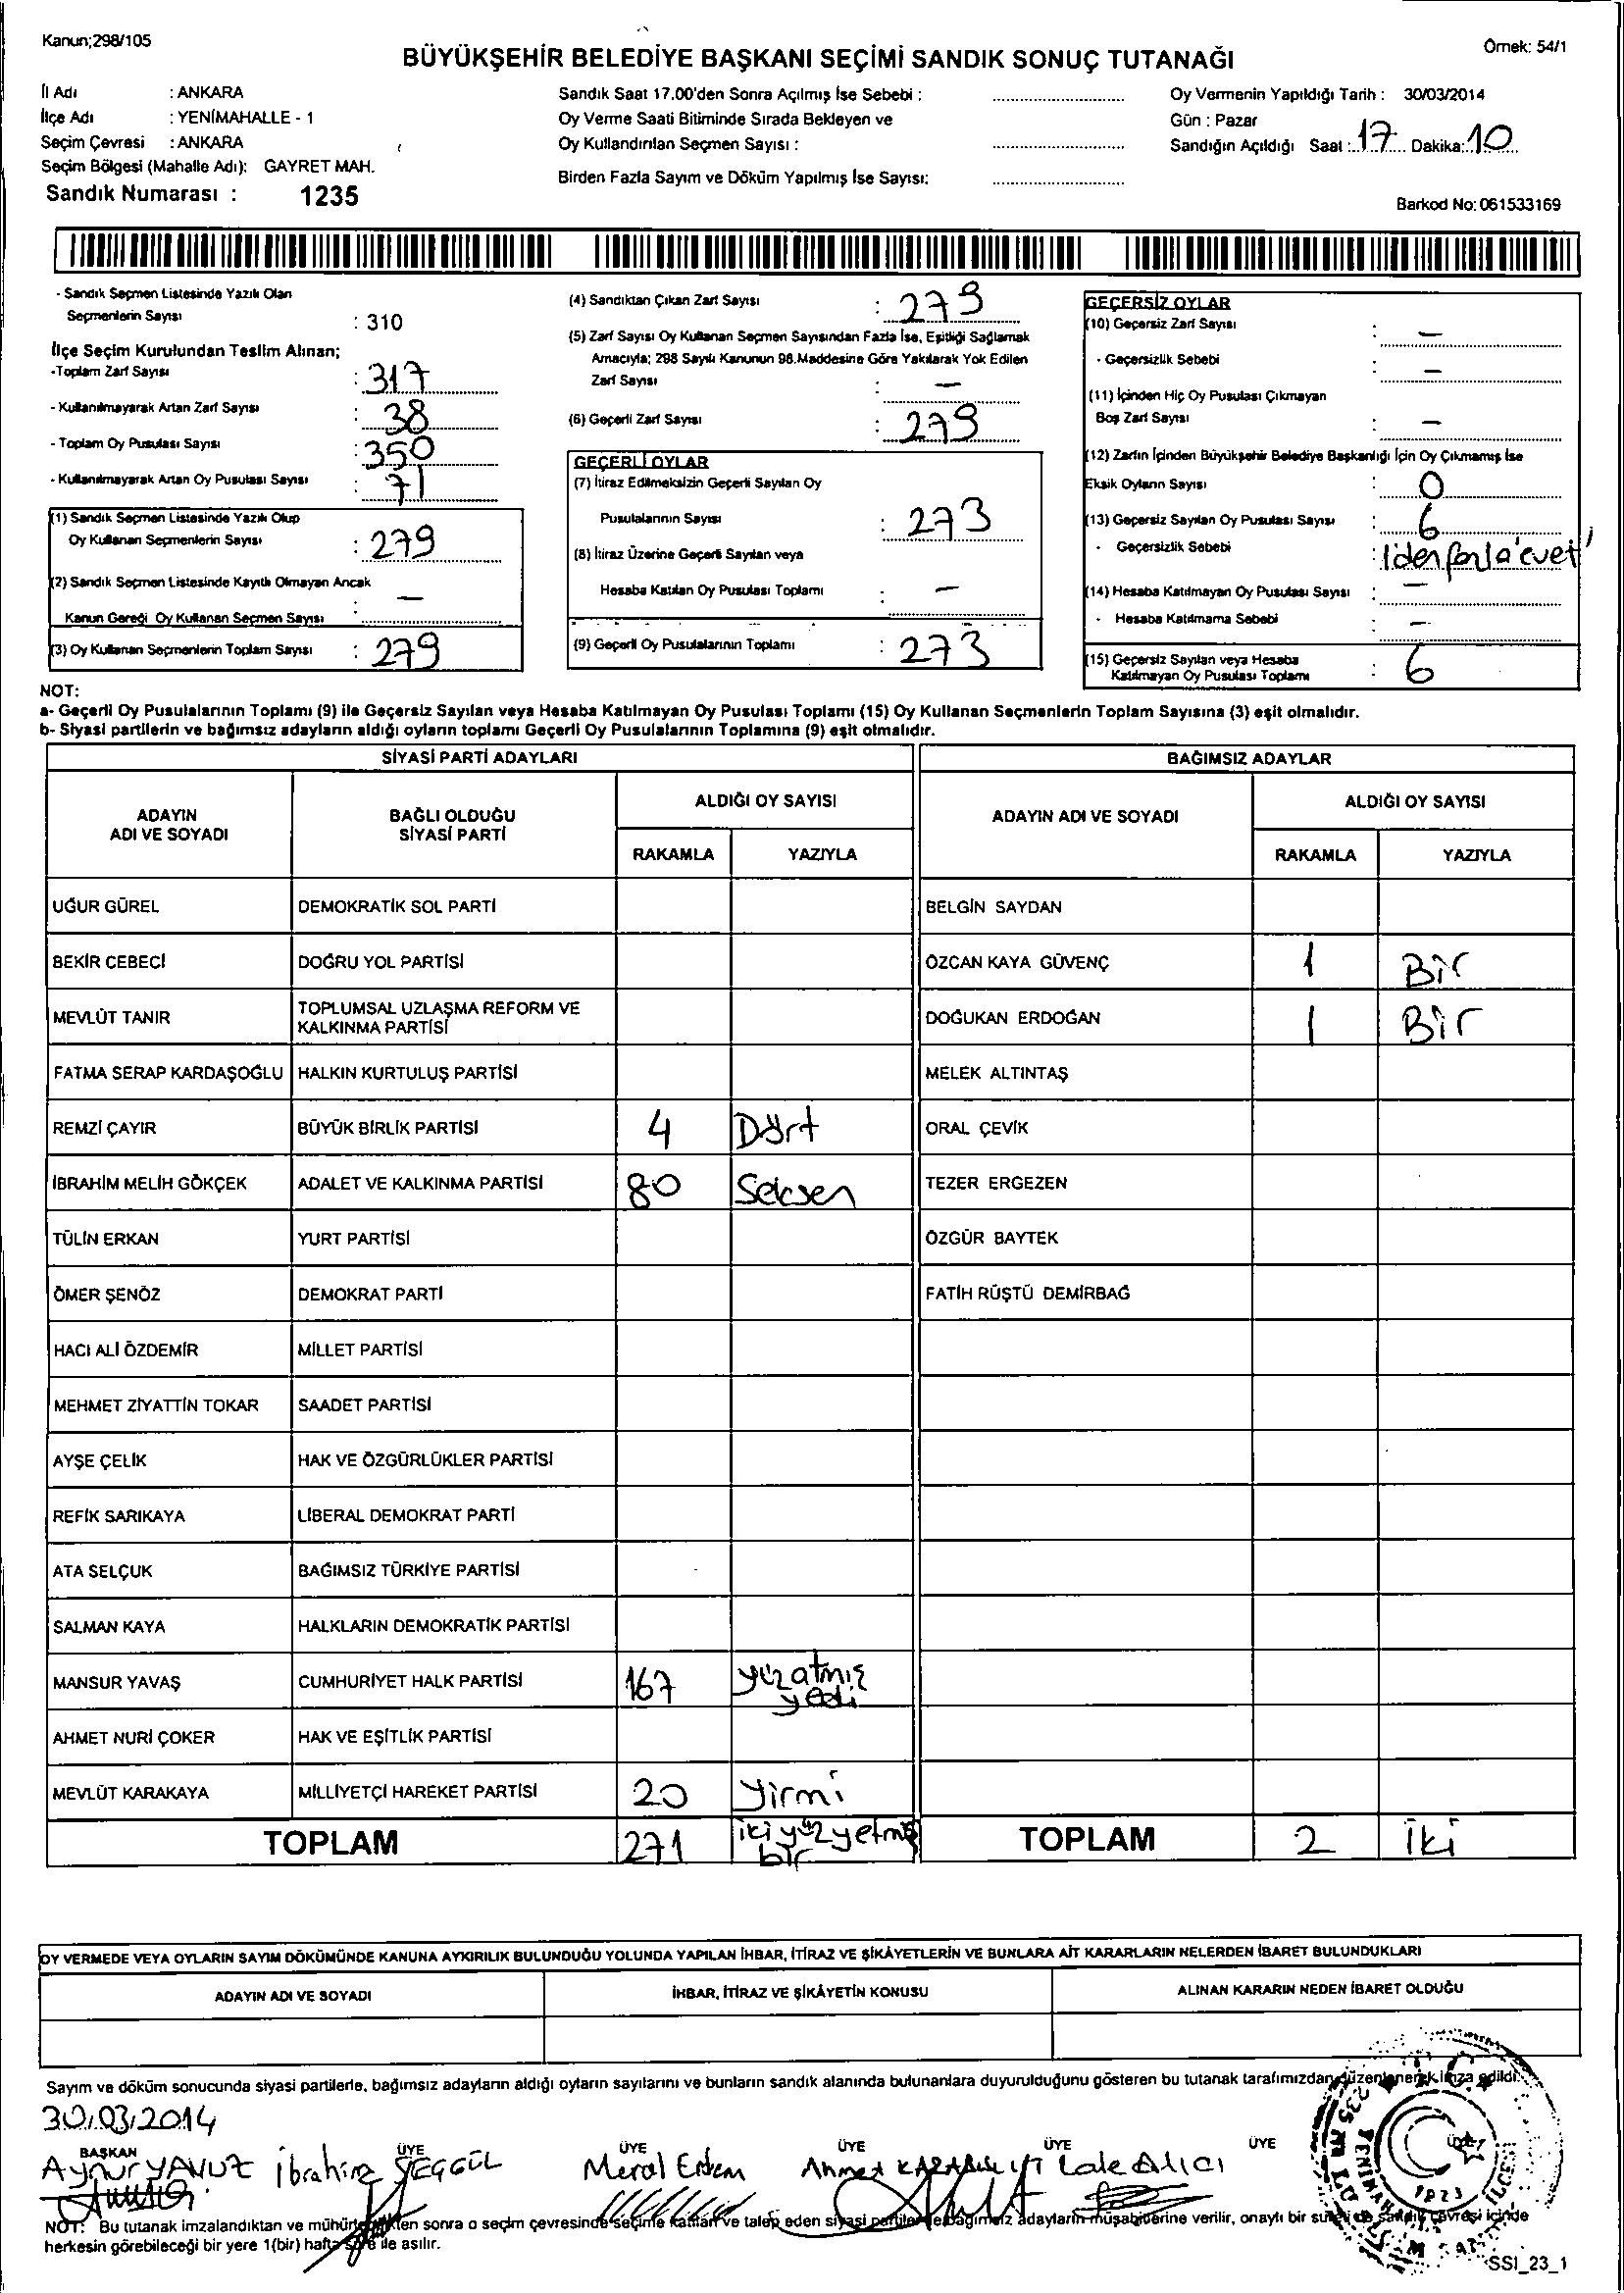 Kanun;298/105
Örnek: 54/1
BÜYÜKŞEHİR BELEDİYE BAŞKANI SEÇİMİ SANDIK SONUÇ TUTANAĞI
İl Adı : ANKARA
İlçe Adı : YENİMAHALLE - 1
Seçim Çevresi : ANKARA
Seçim Bölgesi (Mahalle Adı): GAYRET MAH.
Sandık Numarası : 1235
Sandık Saat 17.00'den Sonra Açılmış İse Sebebi :
Oy Verme Saati Bitiminde Sırada Bekleyen ve
Oy Kullandırılan Seçmen Sayısı :
Birden Fazla Sayım ve Döküm Yapılmış İse Sayısı:
Oy Vermenin Yapıldığı Tarih : 30/03/2014
Gün : Pazar
Sandığın Açıldığı Saat : 17 Dakika: 10
Barkod No: 061533169
- Sandık Seçmen Listesinde Yazılı Olan
Seçmenlerin Sayısı : 310
İlçe Seçim Kurulundan Teslim Alınan;
-Toplam Zarf Sayısı : 317
- Kullanılmayarak Artan Zarf Sayısı : 38
- Toplam Oy Pusulası Sayısı : 350
- Kullanılmayarak Artan Oy Pusulası Sayısı : 71
(1) Sandık Seçmen Listesinde Yazılı Olup
Oy Kullanan Seçmenlerin Sayısı : 279
(2) Sandık Seçmen Listesinde Kayıtlı Olmayan Ancak
Kanun Gereği Oy Kullanan Seçmen Sayısı : —
(3) Oy Kullanan Seçmenlerin Toplam Sayısı : 279
(4) Sandıktan Çıkan Zarf Sayısı : 279
(5) Zarf Sayısı Oy Kullanan Seçmen Sayısından Fazla İse, Eşitliği Sağlamak
Amacıyla; 298 Sayılı Kanunun 98.Maddesine Göre Yakılarak Yok Edilen
Zarf Sayısı : —
(6) Geçerli Zarf Sayısı : 279
GEÇERLİ OYLAR
(7) İtiraz Edilmeksizin Geçerli Sayılan Oy
Pusulalarının Sayısı : 273
(8) İtiraz Üzerine Geçerli Sayılan veya
Hesaba Katılan Oy Pusulası Toplamı : —
(9) Geçerli Oy Pusulalarının Toplamı : 273
GEÇERSİZ OYLAR
(10) Geçersiz Zarf Sayısı : —
- Geçersizlik Sebebi : —
(11) İçinden Hiç Oy Pusulası Çıkmayan
Boş Zarf Sayısı : —
(12) Zarfın İçinden Büyükşehir Belediye Başkanlığı İçin Oy Çıkmamış İse
Eksik Oyların Sayısı : 0
(13) Geçersiz Sayılan Oy Pusulası Sayısı : 6
- Geçersizlik Sebebi : 1'den fazla 'evet'
(14) Hesaba Katılmayan Oy Pusulası Sayısı : —
- Hesaba Katılmama Sebebi : —
(15) Geçersiz Sayılan veya Hesaba
Katılmayan Oy Pusulası Toplamı : 6
NOT:
a- Geçerli Oy Pusulalarının Toplamı (9) ile Geçersiz Sayılan veya Hesaba Katılmayan Oy Pusulası Toplamı (15) Oy Kullanan Seçmenlerin Toplam Sayısına (3) eşit olmalıdır.
b- Siyasi partilerin ve bağımsız adayların aldığı oyların toplamı Geçerli Oy Pusulalarının Toplamına (9) eşit olmalıdır.
SİYASİ PARTİ ADAYLARI
ADAYIN ADI VE SOYADI
BAĞLI OLDUĞU SİYASİ PARTİ
ALDIĞI OY SAYISI
RAKAMLA YAZIYLA
UĞUR GÜREL DEMOKRATİK SOL PARTİ
BEKİR CEBECİ DOĞRU YOL PARTİSİ
MEVLÜT TANIR TOPLUMSAL UZLAŞMA REFORM VE KALKINMA PARTİSİ
FATMA SERAP KARDAŞOĞLU HALKIN KURTULUŞ PARTİSİ
REMZİ ÇAYIR BÜYÜK BİRLİK PARTİSİ 4 Dört
İBRAHİM MELİH GÖKÇEK ADALET VE KALKINMA PARTİSİ 80 Seksen
TÜLİN ERKAN YURT PARTİSİ
ÖMER ŞENÖZ DEMOKRAT PARTİ
HACI ALİ ÖZDEMİR MİLLET PARTİSİ
MEHMET ZİYATTİN TOKAR SAADET PARTİSİ
AYŞE ÇELİK HAK VE ÖZGÜRLÜKLER PARTİSİ
REFİK SARIKAYA LİBERAL DEMOKRAT PARTİ
ATA SELÇUK BAĞIMSIZ TÜRKİYE PARTİSİ
SALMAN KAYA HALKLARIN DEMOKRATİK PARTİSİ
MANSUR YAVAŞ CUMHURİYET HALK PARTİSİ 167 yüzatmış yedi
AHMET NURİ ÇOKER HAK VE EŞİTLİK PARTİSİ
MEVLÜT KARAKAYA MİLLİYETÇİ HAREKET PARTİSİ 20 Yirmi
TOPLAM 271 ikiyüzyetmiş bir
BAĞIMSIZ ADAYLAR
ADAYIN ADI VE SOYADI
ALDIĞI OY SAYISI
RAKAMLA YAZIYLA
BELGİN SAYDAN
ÖZCAN KAYA GÜVENÇ 1 Bir
DOĞUKAN ERDOĞAN 1 Bir
MELEK ALTINTAŞ
ORAL ÇEVİK
TEZER ERGEZEN
ÖZGÜR BAYTEK
FATİH RÜŞTÜ DEMİRBAĞ
TOPLAM 2 İki
OY VERMEDE VEYA OYLARIN SAYIM DÖKÜMÜNDE KANUNA AYKIRILIK BULUNDUĞU YOLUNDA YAPILAN İHBAR, İTİRAZ VE ŞİKÂYETLERİN VE BUNLARA AİT KARARLARIN NELERDEN İBARET BULUNDUKLARI
ADAYIN ADI VE SOYADI
İHBAR, İTİRAZ VE ŞİKÂYETİN KONUSU
ALINAN KARARIN NEDEN İBARET OLDUĞU
Sayım ve döküm sonucunda siyasi partilerle, bağımsız adayların aldığı oyların sayılarını ve bunların sandık alanında bulunanlara duyurulduğunu gösteren bu tutanak tarafımızdan düzenlenerek imza edildi.
30.03.2014
BAŞKAN ÜYE ÜYE ÜYE ÜYE ÜYE ÜYE
Aynur YAVUZ İbrahim Meral Erdem Ahmet Lale Alıcı
T.C.
1923
NOT: Bu tutanak imzalandıktan ve mühürlendikten sonra o seçim çevresinde seçime katılan ve talep eden siyasi partilerle bağımsız adayların müşahitlerine verilir, onaylı bir sureti de sandık çevresi içinde
herkesin görebileceği bir yere 1(bir) hafta süre ile asılır.
SSI_23_1